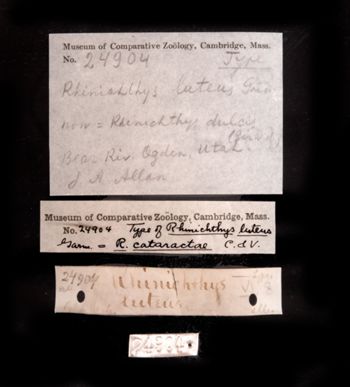 Museum of Comparative Zoölogy, Cambridge, Mass.
No. 24904 Type
Rhinichthys luteus Garm
now = Rhinichthys dulcis
(Girard)
Bear Riv. Ogden, Utah.
J. A. Allen
Museum of Comparative Zoölogy, Cambridge, Mass.
No. 24904 Type of Rhinichthys luteus
Garm. = R. cataractae C. & V.
24904
Rhinichthys
luteus
24904